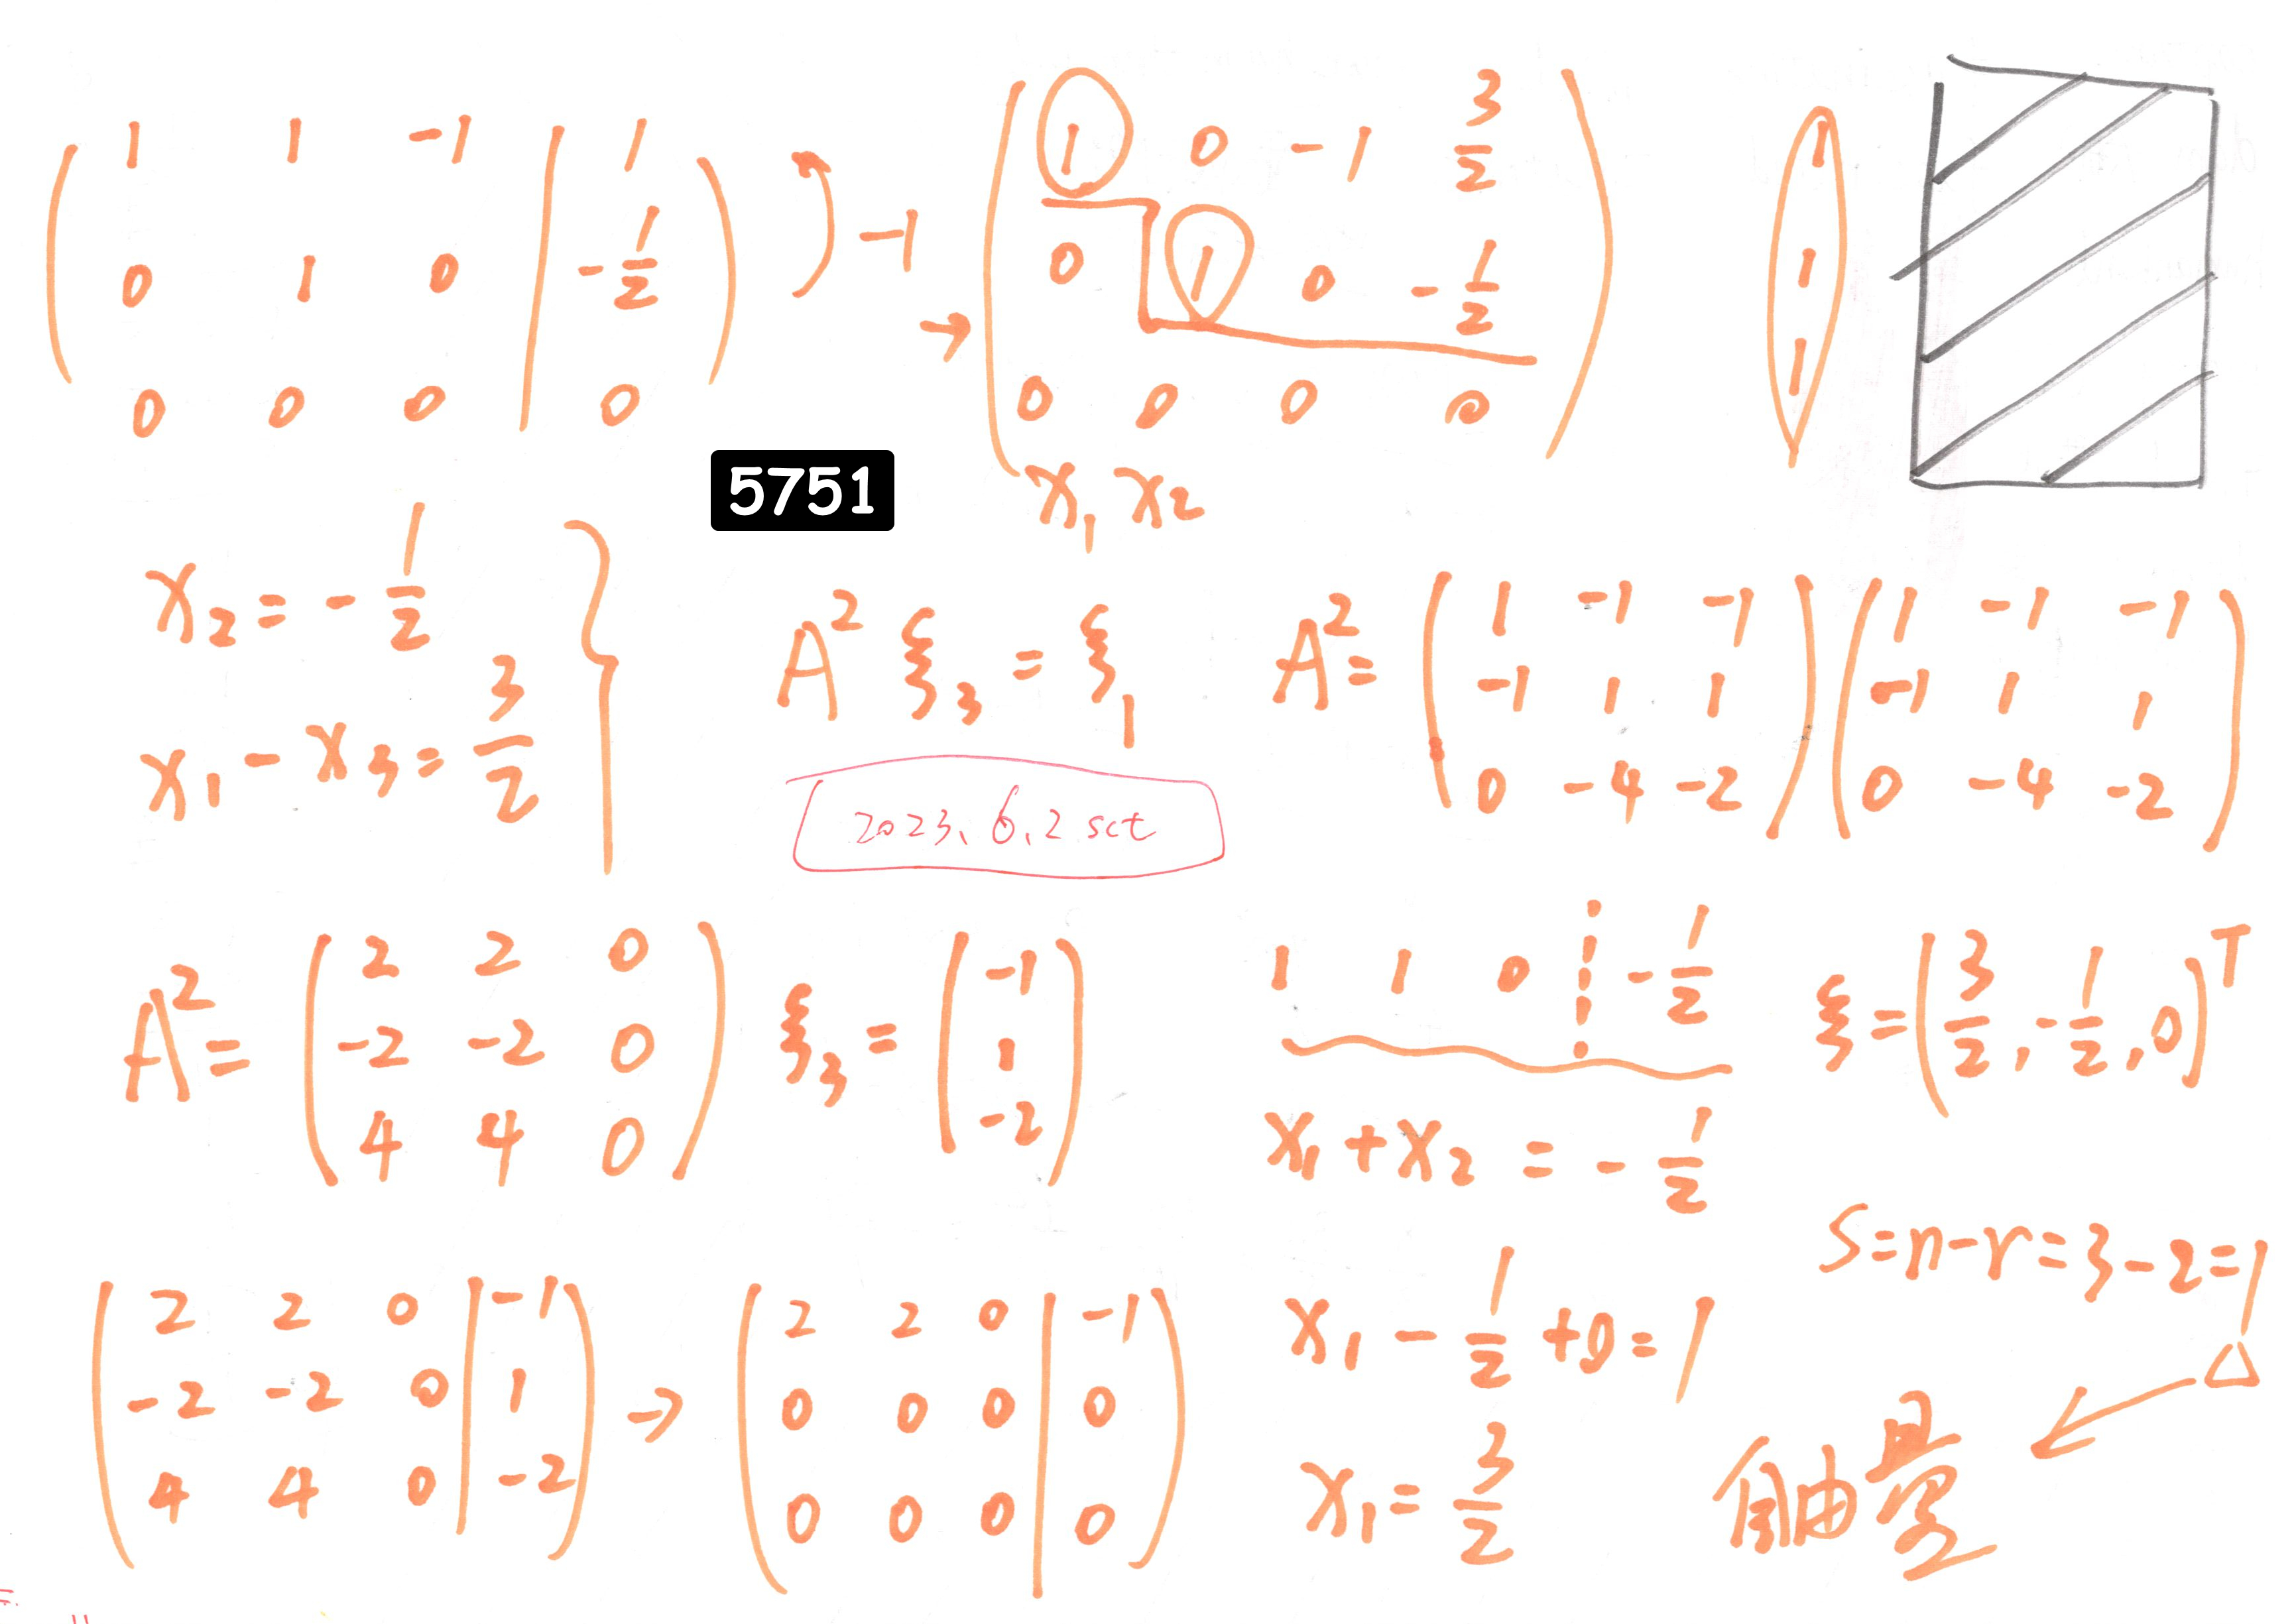 ( 1 1 -1 | 1
0 1 0 | -1/2
0 0 0 | 0 ) -1
→ ( 1 0 -1 3/2
0 1 0 -1/2
0 0 0 0 )
x₁ x₂
1
1
1
5751
x₂ = -1/2
x₁ - x₃ = 3/2 }
A² ξ₃ = ξ₁
2023、6、2 sct
A² = ( 1 -1 -1
-1 1 1
0 -4 -2 ) ( 1 -1 -1
-1 1 1
0 -4 -2 )
A² = ( 2 2 0
-2 -2 0
4 4 0 )
ξ₃ = ( -1
1
-2 )
1 1 0 ⋮ -1/2
x₁ + x₂ = -1/2
ξ = ( 3/2, -1/2, 0 )ᵀ
S = n - r = 3 - 2 = 1
( 2 2 0 | -1
-2 -2 0 | 1
4 4 0 | -2 )
→ ( 2 2 0 | -1
0 0 0 | 0
0 0 0 | 0 )
x₁ - 1/2 + 0 = 1
x₁ = 3/2
△
自由量